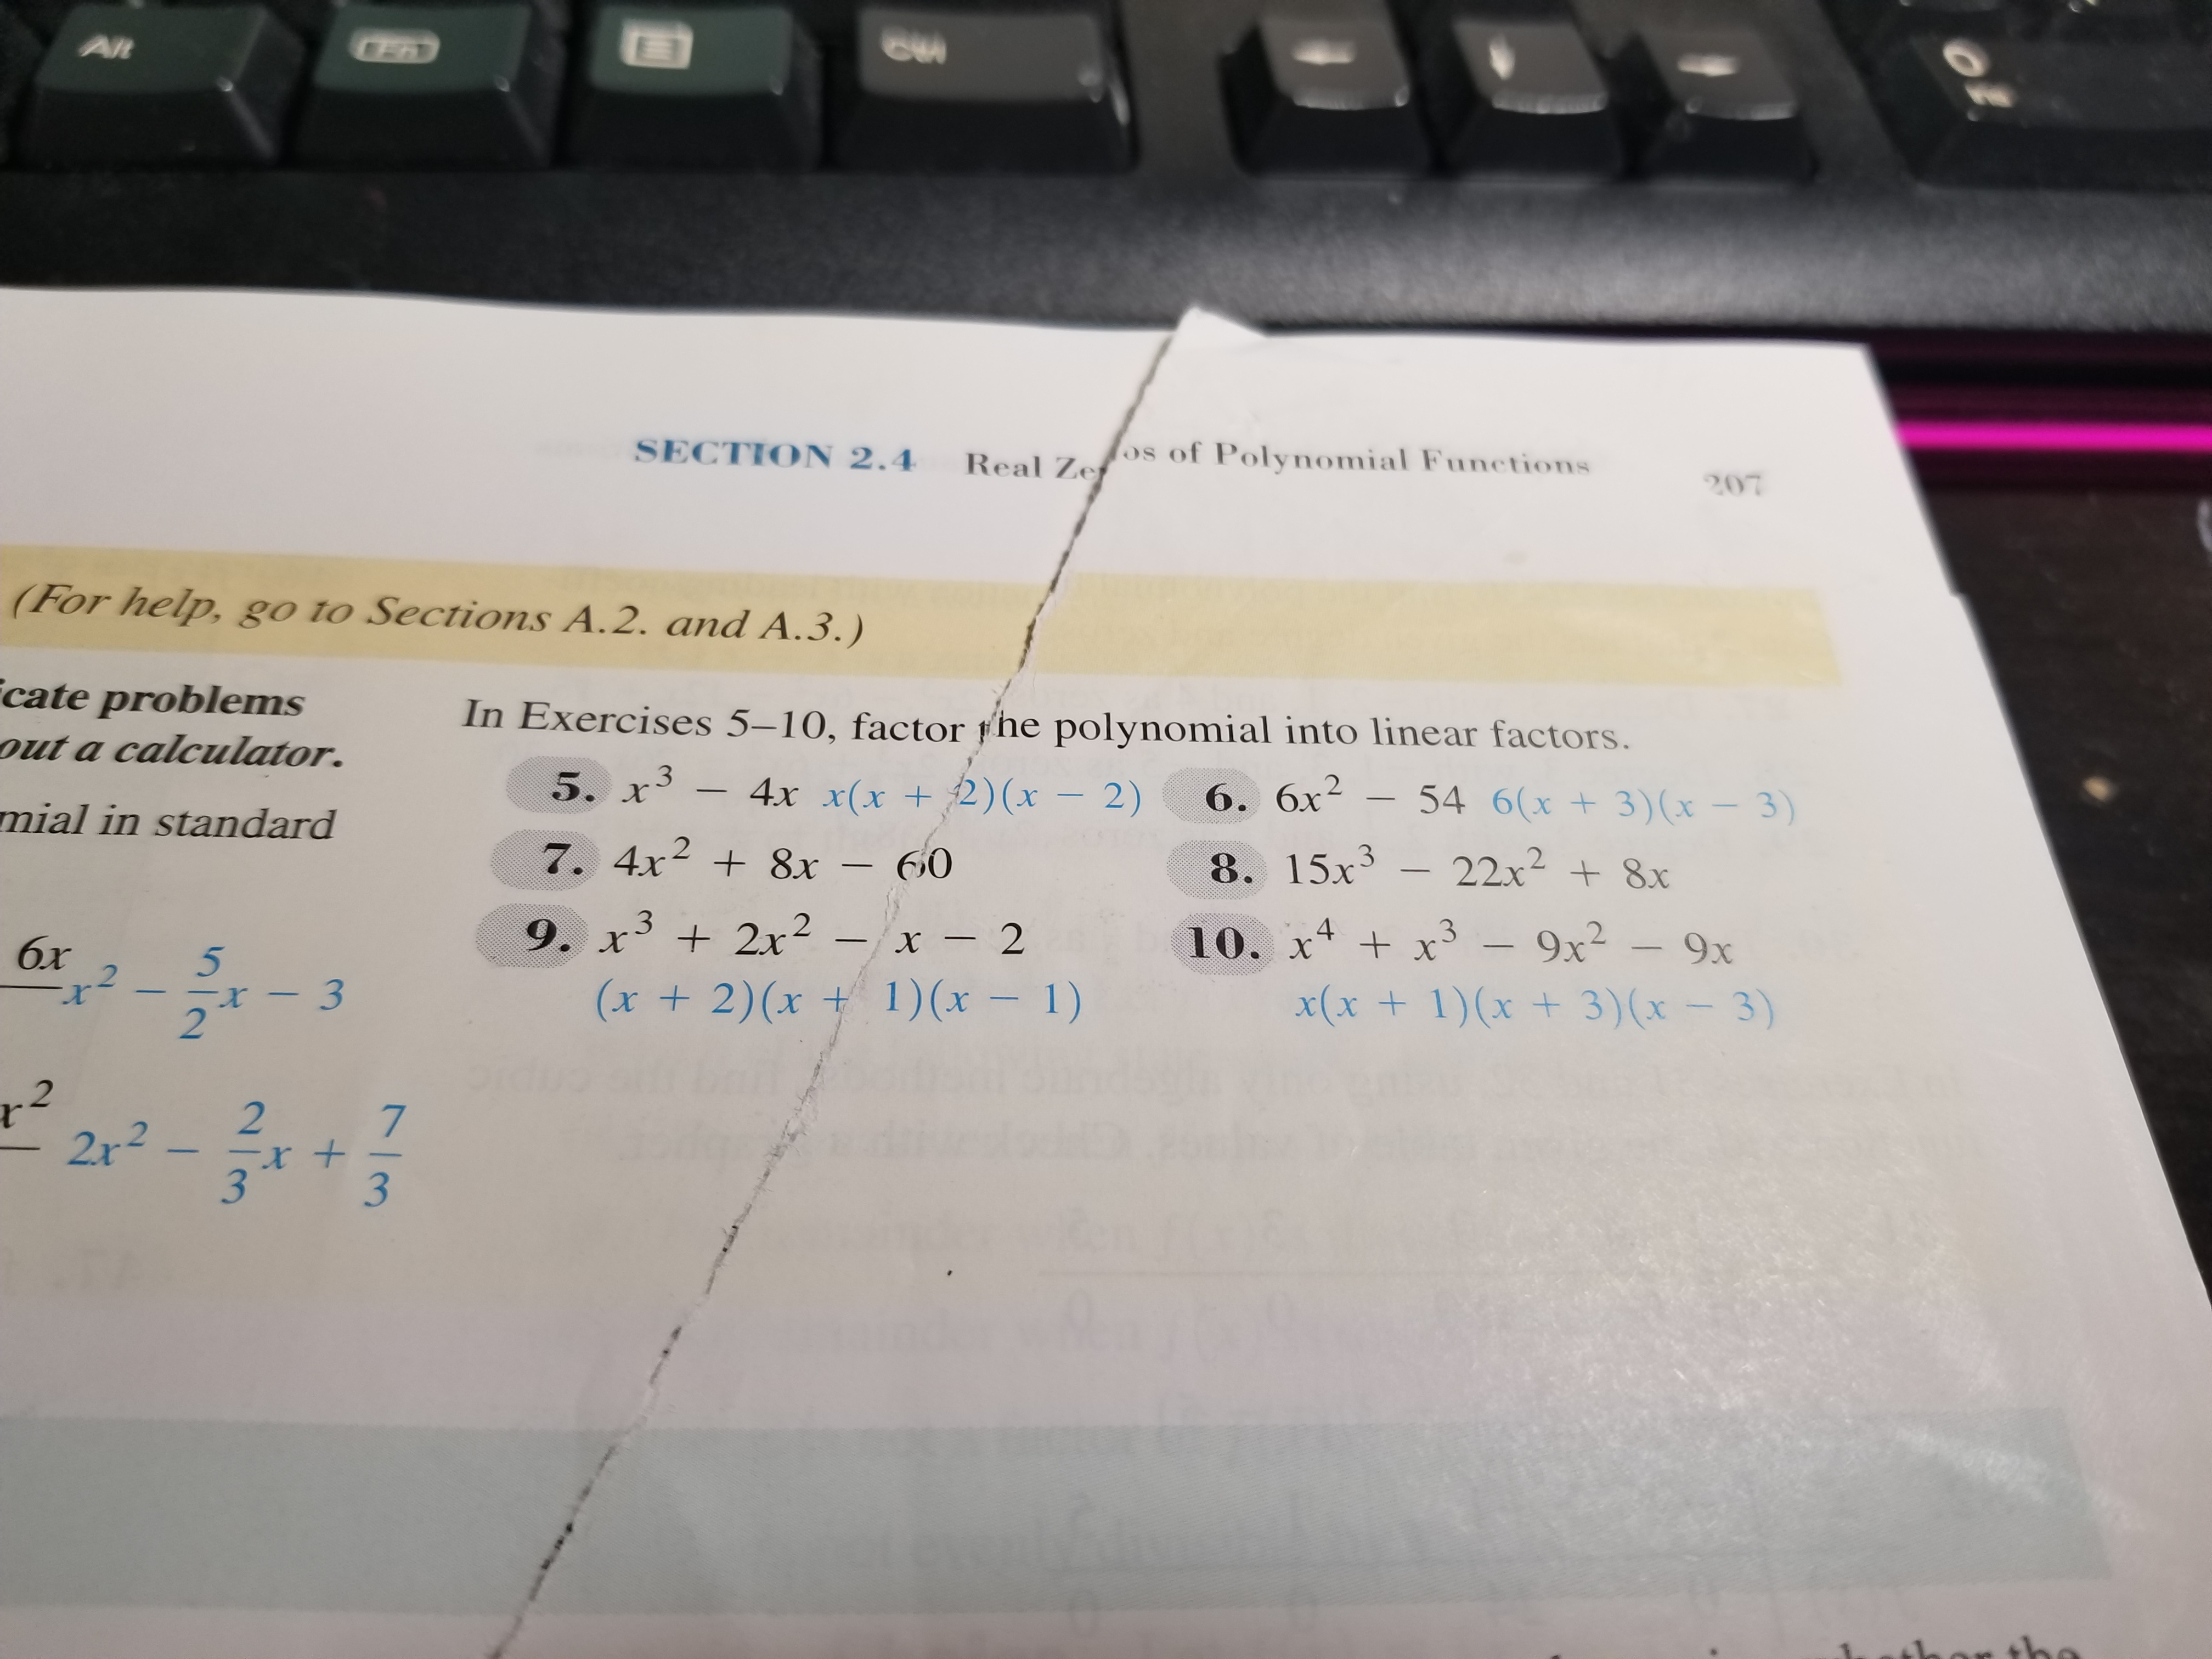 Alt
Fn
Ctrl
0
Ins
SECTION 2.4 Real Zeros of Polynomial Functions 207
(For help, go to Sections A.2. and A.3.)
icate problems
out a calculator.
mial in standard
6x
x² − 5/2 x − 3
x²
2x² − 2/3 x + 7/3
In Exercises 5–10, factor the polynomial into linear factors.
5. x³ − 4x x(x + 2)(x − 2) 6. 6x² − 54 6(x + 3)(x − 3)
7. 4x² + 8x − 60 8. 15x³ − 22x² + 8x
9. x³ + 2x² − x − 2 10. x⁴ + x³ − 9x² − 9x
(x + 2)(x + 1)(x − 1) x(x + 1)(x + 3)(x − 3)
whether the